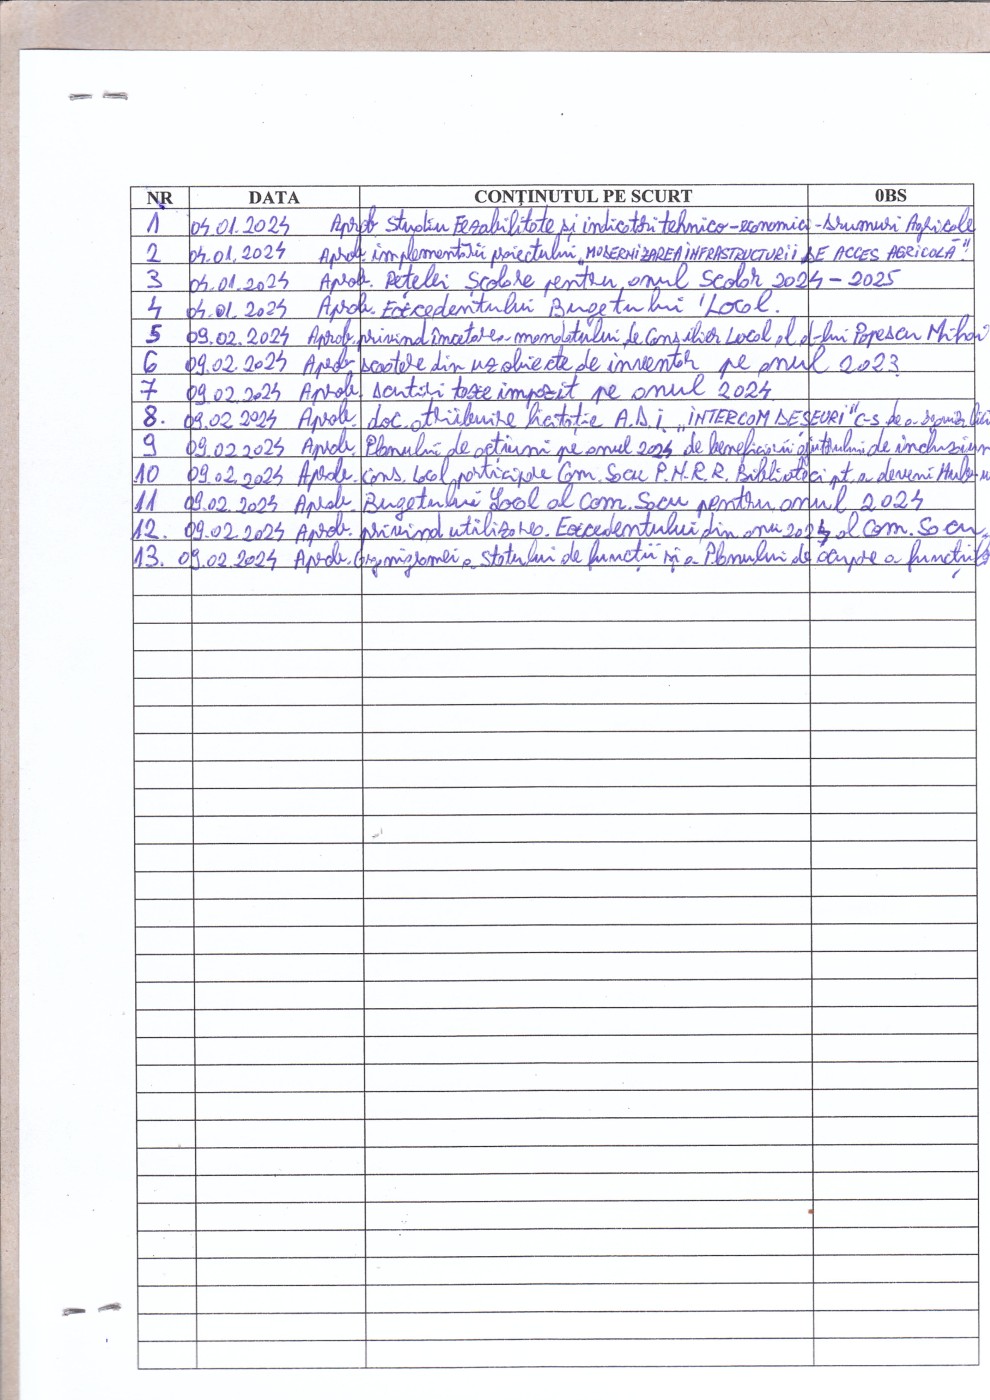 NR DATA CONȚINUTUL PE SCURT 0BS
1 04.01.2024 Aprob Studiu Fezabilitate și indicatori tehnico-economici - Drumuri Agricole
2 04.01.2024 Aprob. implementării proiectului „MODERNIZAREA INFRASTRUCTURII DE ACCES AGRICOLĂ"
3 04.01.2024 Aprob. Rețelei Școlare pentru anul Școlar 2024-2025
4 04.01.2024 Aprob. Excedentului Bugetului Local.
5 09.02.2024 Aprob. privind încetarea mandatului de Consilier Local al d-lui Popescu Mihai
6 09.02.2024 Aprob. scoatere din uz obiecte de inventar pe anul 2023
7 09.02.2024 Aprob. scutiri taxe impozit pe anul 2024
8. 09.02 2024 Aprob. doc. atribuire licitație A.D.I. „INTERCOM DEȘEURI" C-S
9 09.02.2024 Aprob. Planului de acțiuni pe anul 2024 de beneficiarii ajutorului de incluziun
10 09.02.2024 Aprob. Cons. Local participare Com. Socu P.N.R.R. Bibliotecii pt. a deveni
11 09.02.2024 Aprob. Bugetului Local al Com. Socu pentru anul 2024
12. 09.02.2024 Aprob. privind utilizarea Excedentului din anu 2024 al Com. Socu.
13. 09.02.2024 Aprob. Organigramei a Statului de funcții și a Planului de ocupre a funcțiil